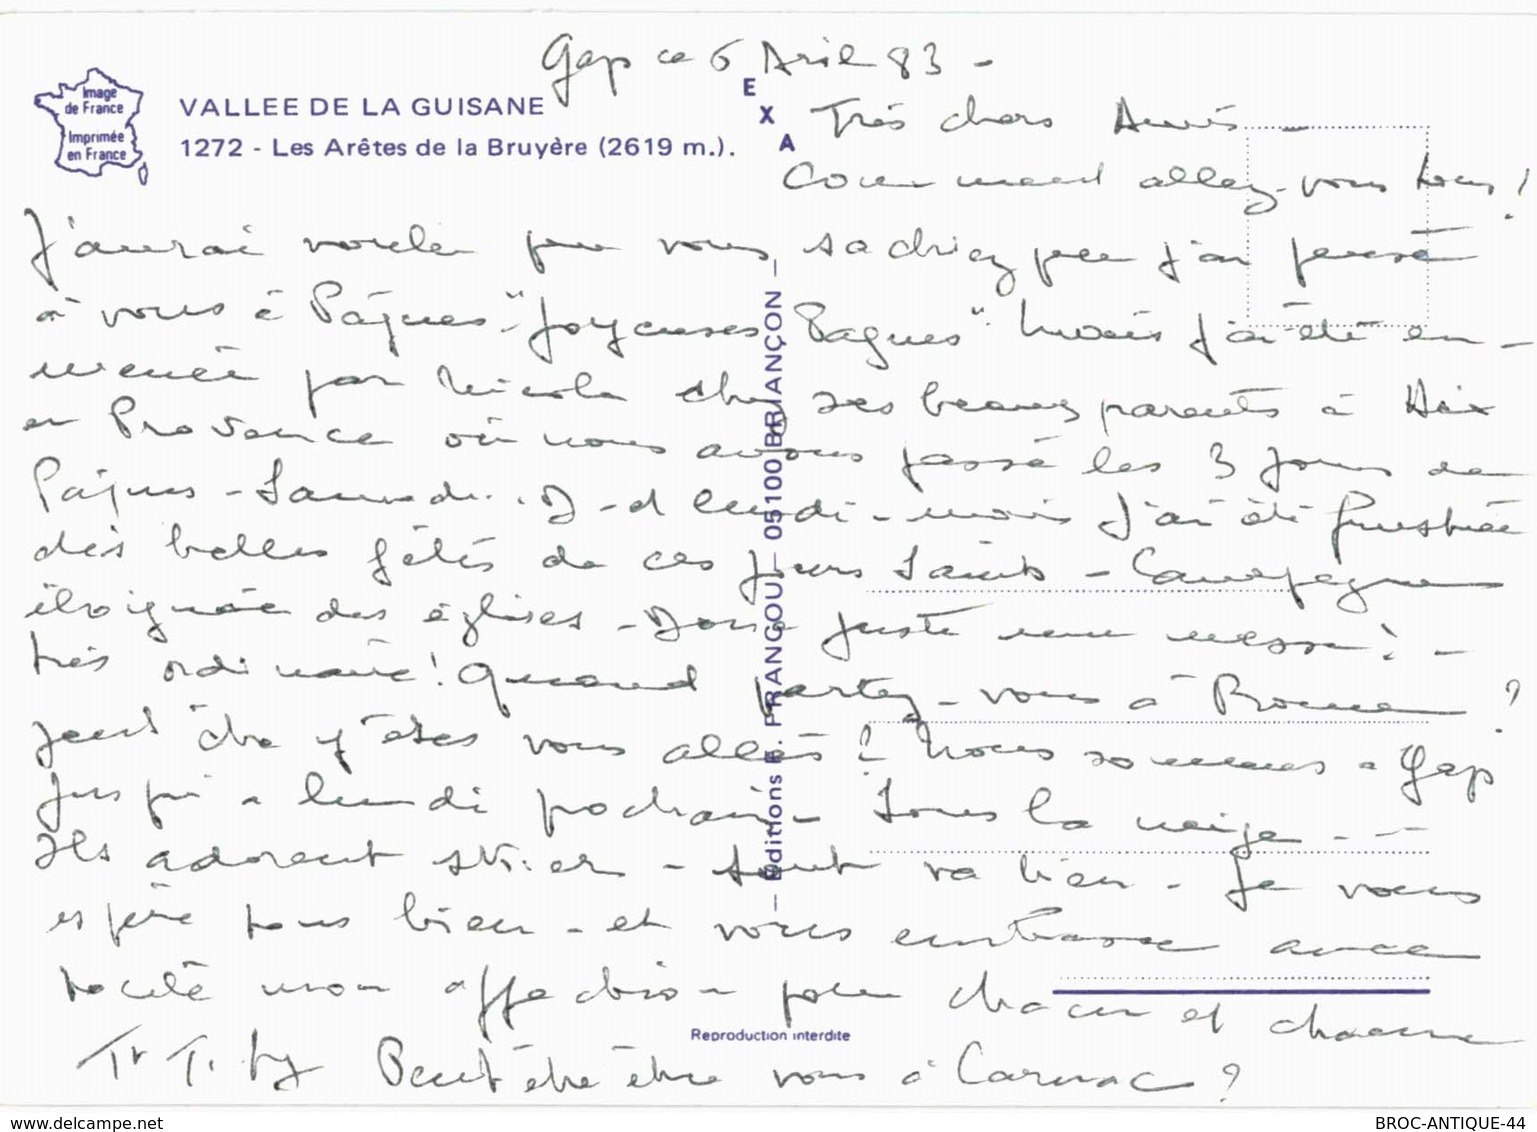 Gap ce 6 Avril 83 -
Image
de France
Imprimée
en France
VALLEE DE LA GUISANE
1272 - Les Arêtes de la Bruyère (2619 m.).
EXA
Très chers Amis -
Comment allez-vous tous ?
J'aurai voulu que vous sachiez que j'ai pensé
à vous à Pâques - "Joyeuses Pâques" - Mais j'ai été em-
menée par Nicole chez ses beaux parents à Aix
en Provence où nous avons passé les 3 jours de
Pâques - Samedi . D - et lundi - mais j'ai été frustrée
des belles fêtes de ces jours Saints - Campagne
éloignée des églises - Donc juste une messe ! -
très ordinaire ! Quand partez-vous à Rome ?
peut être y êtes vous allés ? Nous sommes à Gap
jusqu'à lundi prochain - Sous la neige - -
Ils adorent skier - tout va bien - Je vous
espère tous bien - et vous embrasse avec
toute mon affection pour chacun et chacune
Peut être être vous à Carnac ?
— Editions F. FRANCOU — 05100 BRIANÇON —
Reproduction interdite
https://www.delcampe.net
BROC-ANTIQUE-44